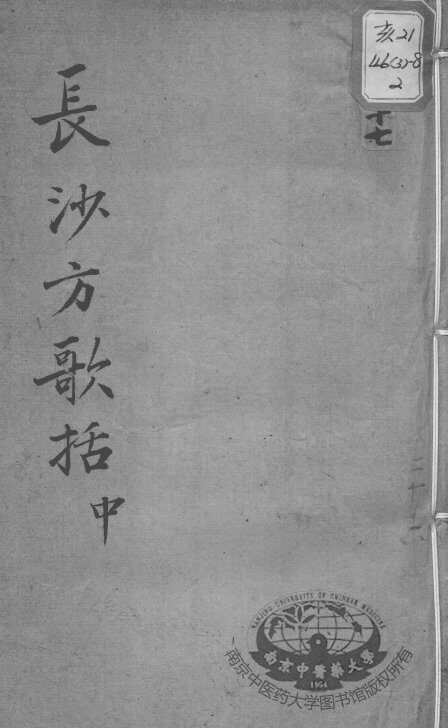 長沙方歌括中
亥21
46(3)-8
2
十七
NANJING UNIVERSITY OF CHINESE MEDICINE
南京中醫藥大學
1954
南京中医药大学图书馆版权所有